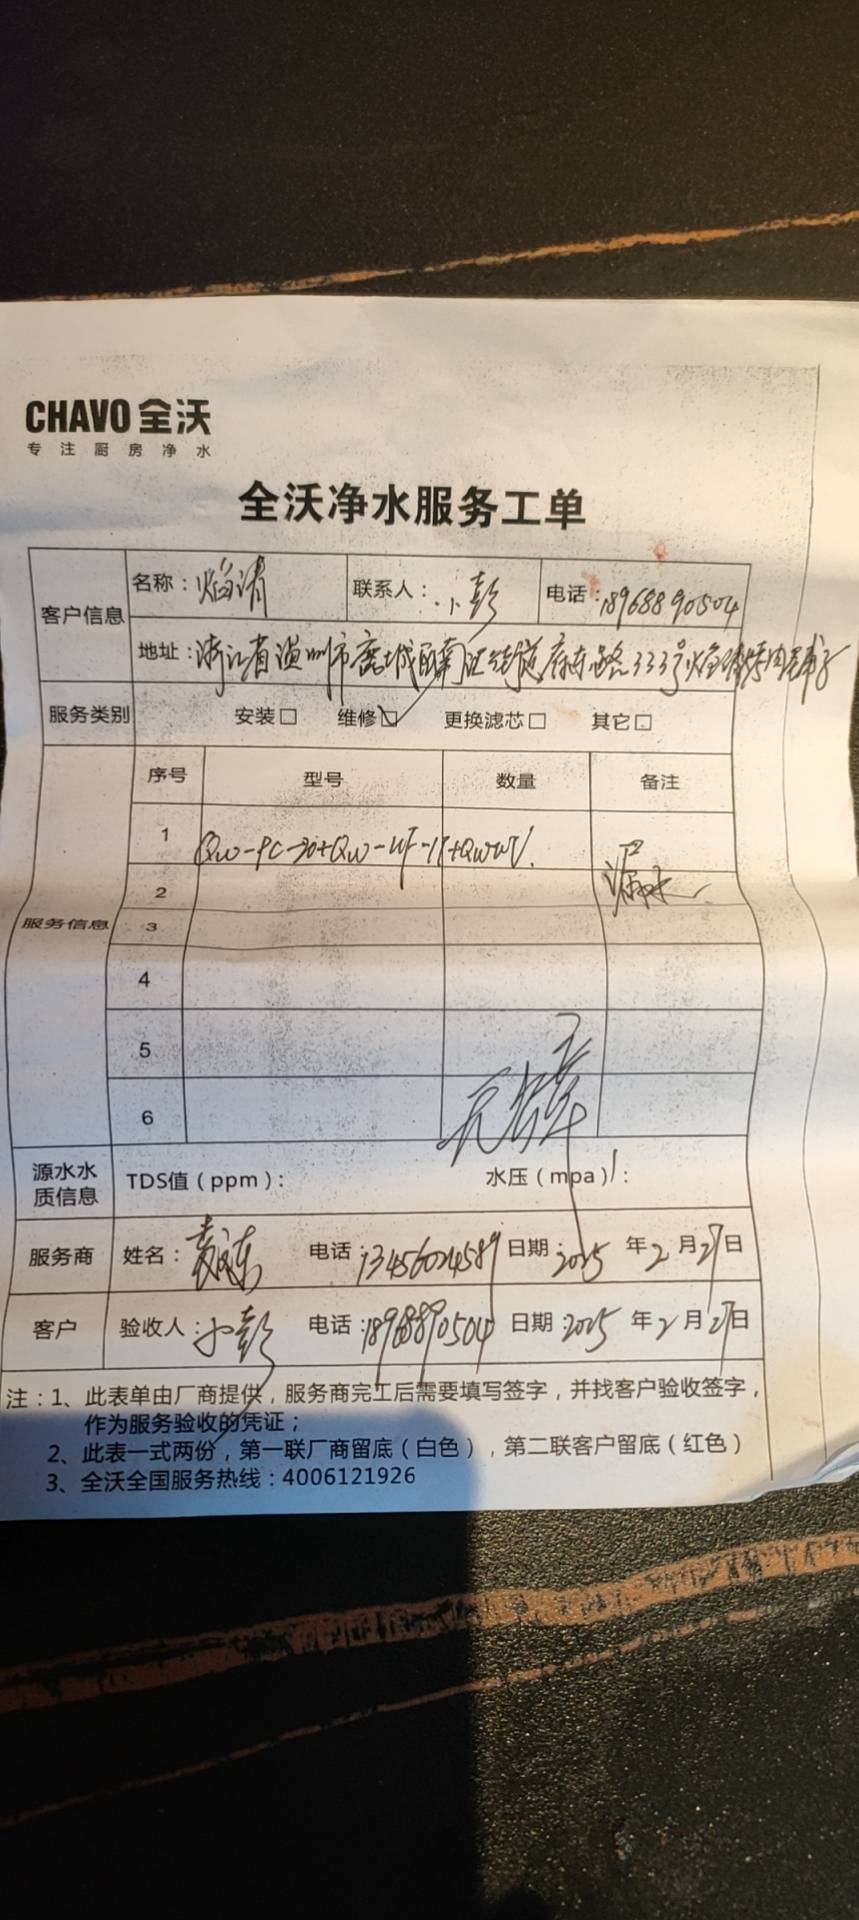 CHAVO 全沃
专注厨房净水
全沃净水服务工单
客户信息
名称：焰请 联系人：小彭 电话：18968890504
地址：浙江省温州市鹿城区南汇街道府东路333号
服务类别 安装□ 维修☑ 更换滤芯□ 其它□
服务信息
序号 型号 数量 备注
1
2 漏水
3
4
5
6
源水水质信息 TDS值（ppm）： 水压（mpa）：
服务商 姓名： 电话：13456024589 日期：2025 年 2 月 27 日
客户 验收人：小彭 电话：18968890504 日期：2025 年 2 月 27 日
注：1、此表单由厂商提供，服务商完工后需要填写签字，并找客户验收签字，
作为服务验收的凭证；
2、此表一式两份，第一联厂商留底（白色），第二联客户留底（红色）
3、全沃全国服务热线：4006121926